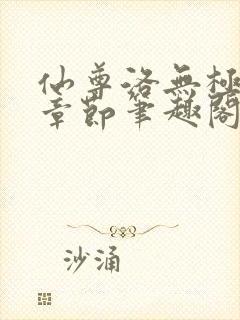 仙尊洛無極
章節筆趣閣
沙涌